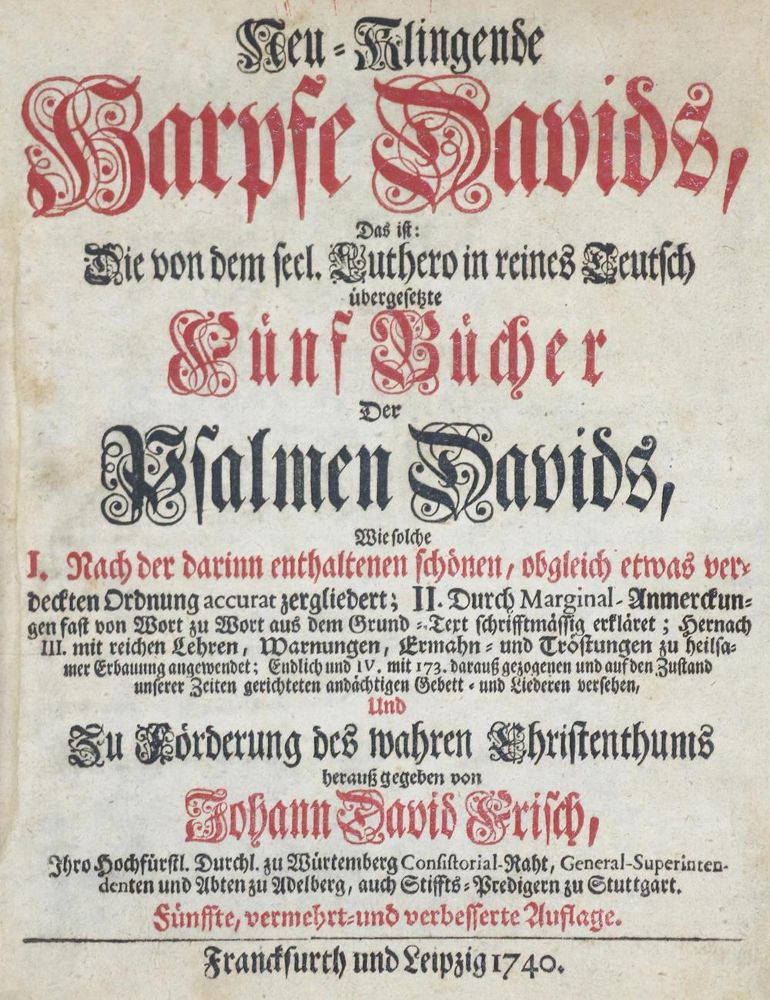 Neu-Klingende
Harpfe Davids,
Das ist:
Die von dem seel. Luthero in reines Teutsch
übergesetzte
Fünf Bücher
Der
Psalmen Davids,
Wie solche
I. Nach der darinn enthaltenen schönen, obgleich etwas ver-
deckten Ordnung accurat zergliedert; II. Durch Marginal-Anmerckun-
gen fast von Wort zu Wort aus dem Grund-Text schrifftmässig erkläret; Hernach
III. mit reichen Lehren, Warnungen, Ermahn- und Tröstungen zu heilsa-
mer Erbauung angewendet; Endlich und IV. mit 173. darauß gezogenen und auf den Zustand
unserer Zeiten gerichteten andächtigen Gebett- und Liederen versehen,
Und
Zu Förderung des wahren Christenthums
herauß gegeben von
Johann David Frisch,
Ihro Hochfürstl. Durchl. zu Würtemberg Consistorial-Raht, General-Superinten-
denten und Abten zu Adelberg, auch Stiffts-Predigern zu Stuttgart.
Fünffte, vermehrt- und verbesserte Auflage.
Franckfurth und Leipzig 1740.